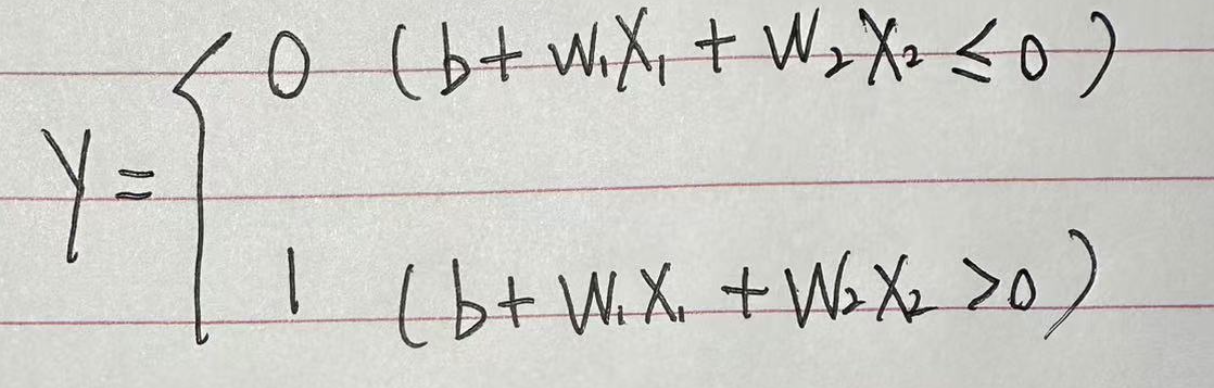 Y = { 0 (b + W₁X₁ + W₂X₂ ≤ 0)
1 (b + W₁X₁ + W₂X₂ > 0)